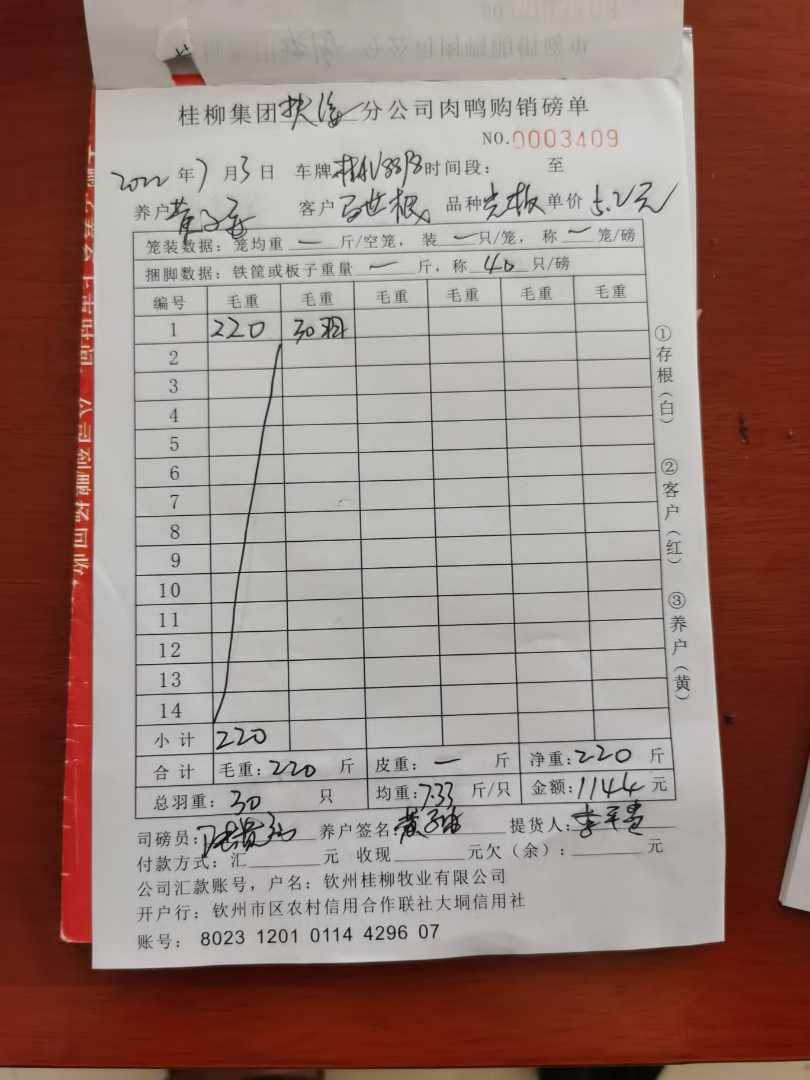 桂柳集团分公司肉鸭购销磅单
NO.0003409
2022年7月3日 车牌 时间段: 至
养户 客户 品种 单价 5.2元
笼装数据: 笼均重 一 斤/空笼, 装 一 只/笼, 称 一 笼/磅
捆脚数据: 铁筐或板子重量 一 斤, 称 40 只/磅
编号 毛重 毛重 毛重 毛重 毛重 毛重
1 220 30羽
2
3
4
5
6
7
8
9
10
11
12
13
14
小计 220
合计 毛重: 220 斤 皮重: 一 斤 净重: 220 斤
总羽重: 30 只 均重: 7.33 斤/只 金额: 1144 元
司磅员: 养户签名: 提货人:
付款方式: 汇 元 收现 元欠(余): 元
公司汇款账号, 户名: 钦州桂柳牧业有限公司
开户行: 钦州市区农村信用合作联社大垌信用社
账号: 8023 1201 0114 4296 07
①存根(白) ②客户(红) ③养户(黄)